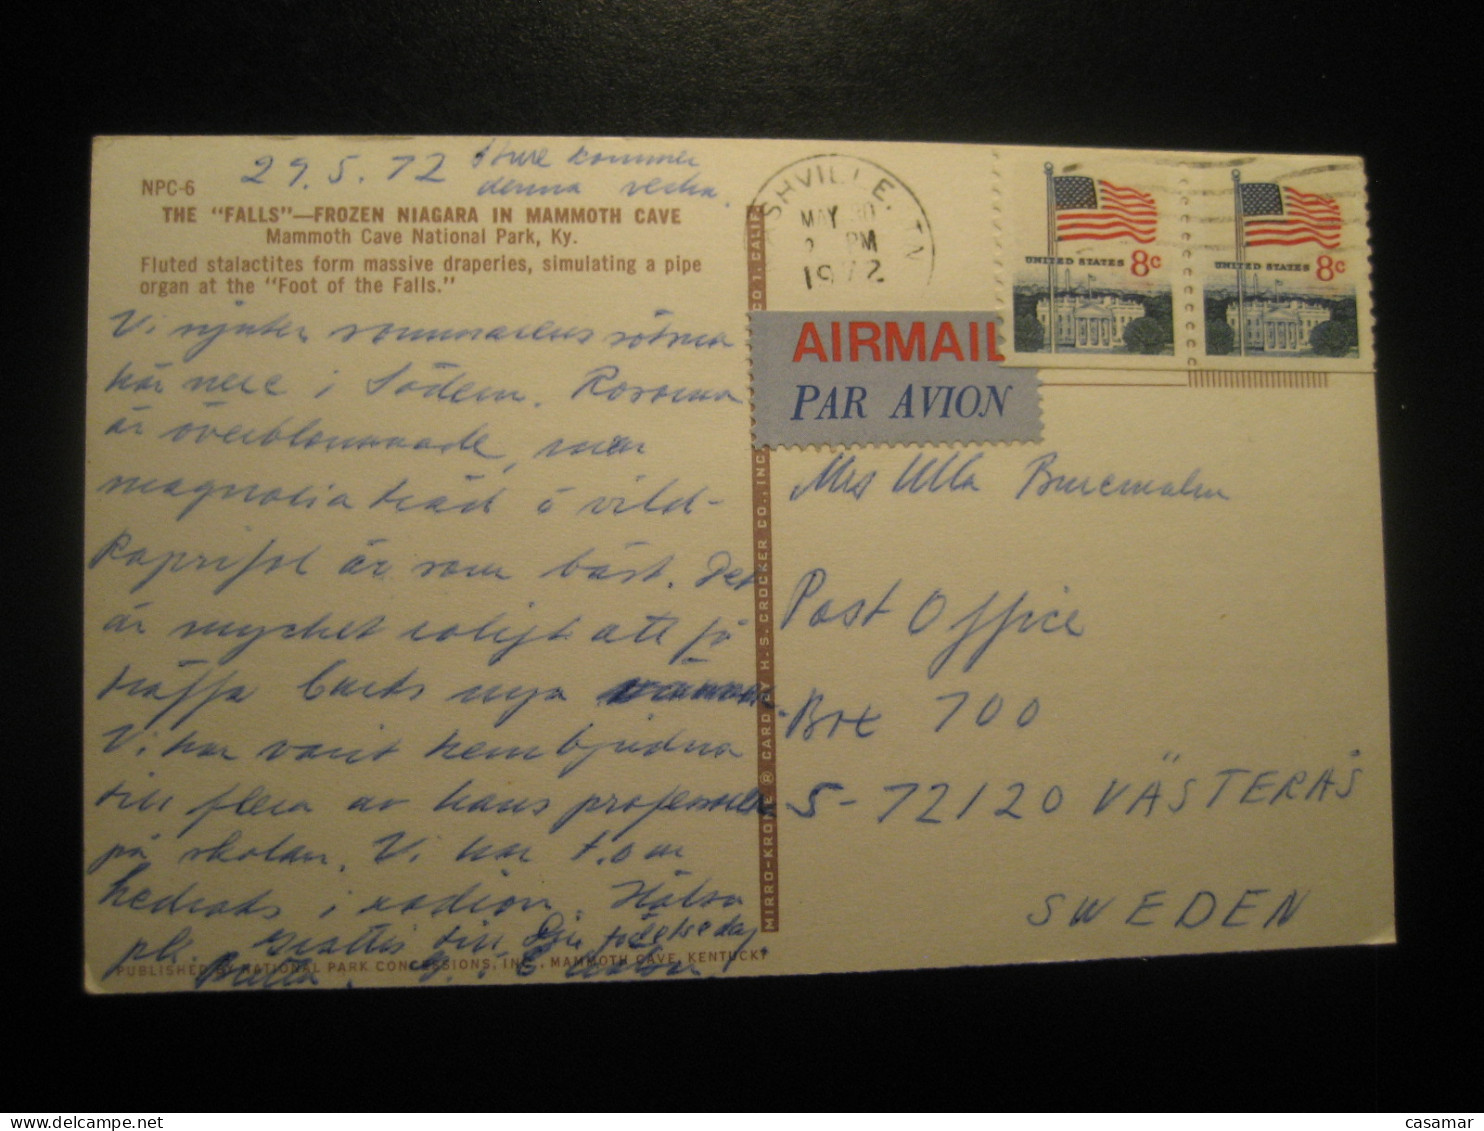 29.5.72 Sture kommer
denna vecka.
NPC-6
THE "FALLS"—FROZEN NIAGARA IN MAMMOTH CAVE
Mammoth Cave National Park, Ky.
Fluted stalactites form massive draperies, simulating a pipe
organ at the "Foot of the Falls."
Vi njuter sommarens sötma
här nere i Södern. Rosorna
är överblommade, men
magnolia träd o vild-
kaprifol är som bäst. Det
är mycket roligt att få
träffa Curts nya
Vi har varit hembjudna
till flera av hans professorer
på skolan. Vi har t.o.m
hedrats i radion. Hälsa
Grattis till Din födelsedag
PUBLISHED BY NATIONAL PARK CONCESSIONS, INC., MAMMOTH CAVE, KENTUCKY
MIRRO-KROME ® CARD BY H. S. CROCKER CO., INC.
ASHVILLE, TN
MAY 30
PM
1972
UNITED STATES 8c
UNITED STATES 8c
AIRMAIL
PAR AVION
Mrs Ulla
Post Office
Box 700
S-72120 VÄSTERÅS
SWEDEN
casamar